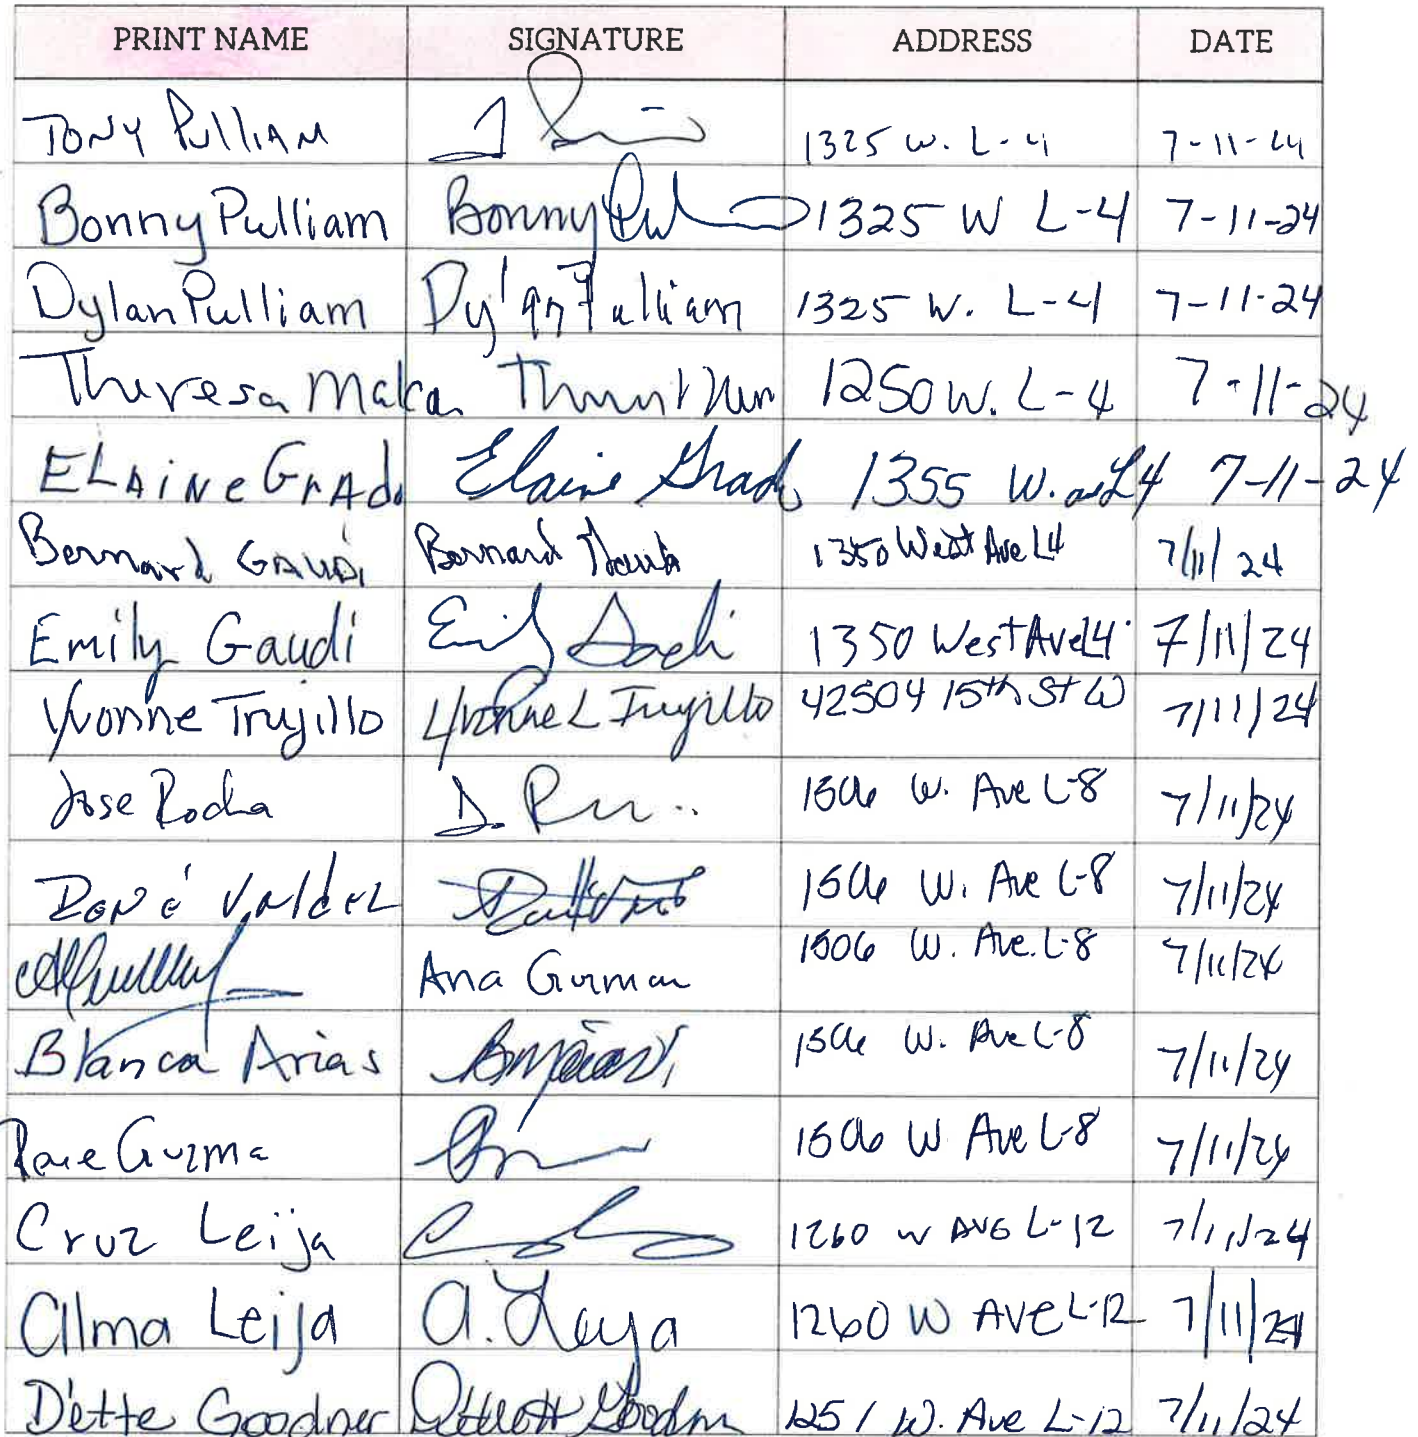 PRINT NAME SIGNATURE ADDRESS DATE
TONY PULLIAM 1325 W. L-4 7-11-24
Bonny Pulliam Bonny 1325 W L-4 7-11-24
Dylan Pulliam Dylan Pulliam 1325 W. L-4 7-11-24
Theresa Maka 1250 W. L-4 7-11-24
ELAiNe GrAdo Elaine Grado 1355 W. ave L4 7-11-24
Bernard GAUDI Bernard Gaudi 1350 West Ave L4 7/11/24
Emily Gaudi Emily Gaudi 1350 West Ave L4 7/11/24
Yvonne Trujillo Yvonne L Trujillo 42504 15th St W 7/11/24
Jose Rocha 1506 W. Ave L-8 7/11/24
René Valdez 1506 W. Ave L-8 7/11/24
Ana Guzman 1506 W. Ave. L-8 7/11/24
Blanca Arias 1506 W. Ave L-8 7/11/24
Guzma 1506 W Ave L-8 7/11/24
Cruz Leija 1260 W AVE L-12 7/11/24
Alma Leija A. Leija 1260 W AVE L-12 7/11/24
D'ette Goodner D'ette Goodner 1251 W. Ave L-12 7/11/24